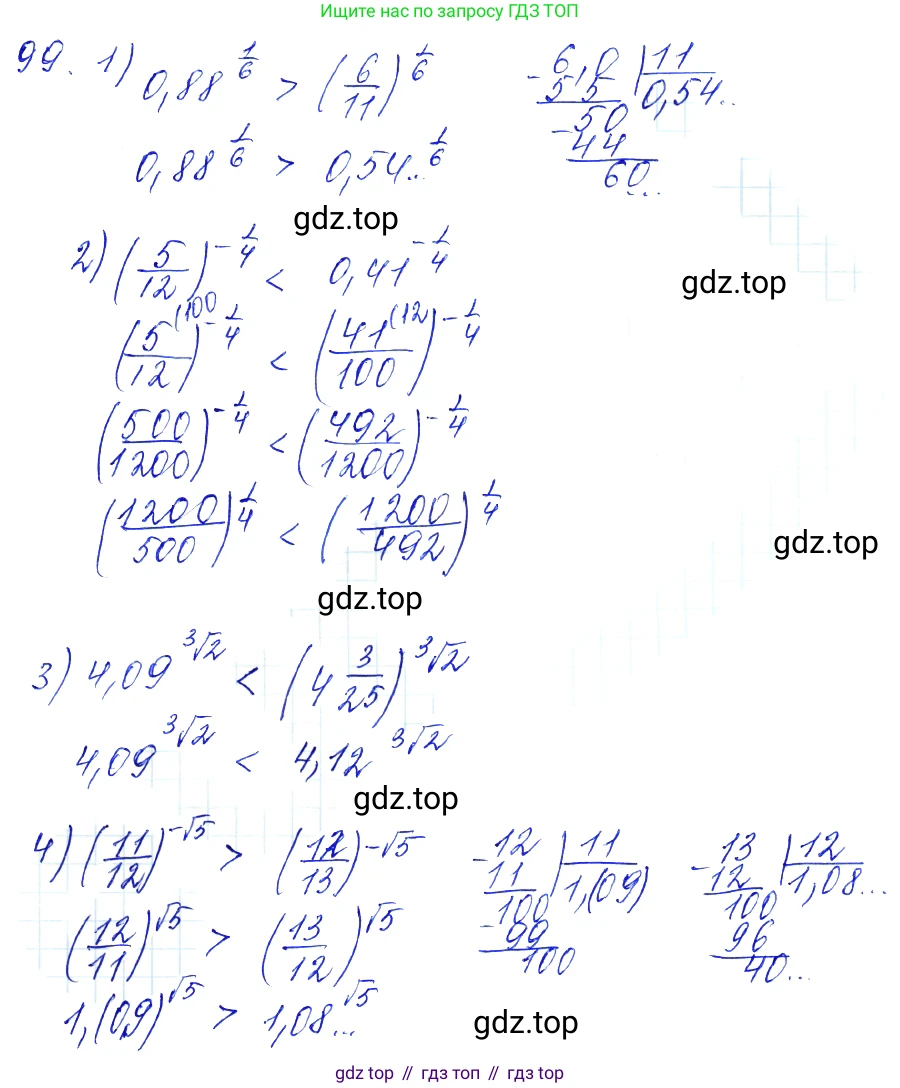 Ищите нас по запросу ГДЗ ТОП
99. 1) 0,88^(1/6) > (6/11)^(1/6)
6,0 | 11
- 55 0,54..
50
- 44
60...
0,88^(1/6) > 0,54...^(1/6)
gdz.top
2) (5/12)^(-1/4) < 0,41^(-1/4)
gdz.top
(5^(100/12)^(-1/4) < (41^(12/100)^(-1/4)
(500/1200)^(-1/4) < (492/1200)^(-1/4)
(1200/500)^(1/4) < (1200/492)^(1/4)
gdz.top
gdz.top
3) 4,09^(³√2) < (4 3/25)^(³√2)
4,09^(³√2) < 4,12^(³√2)
gdz.top
4) (11/12)^(-√5) > (12/13)^(-√5)
(12/11)^(√5) > (13/12)^(√5)
1,(09)^(√5) > 1,08...^(√5)
- 12 | 11
11 1,(09)
100
- 99
100
- 13 | 12
12 1,08...
100
96
40...
gdz.top
gdz top // гдз топ // gdz top